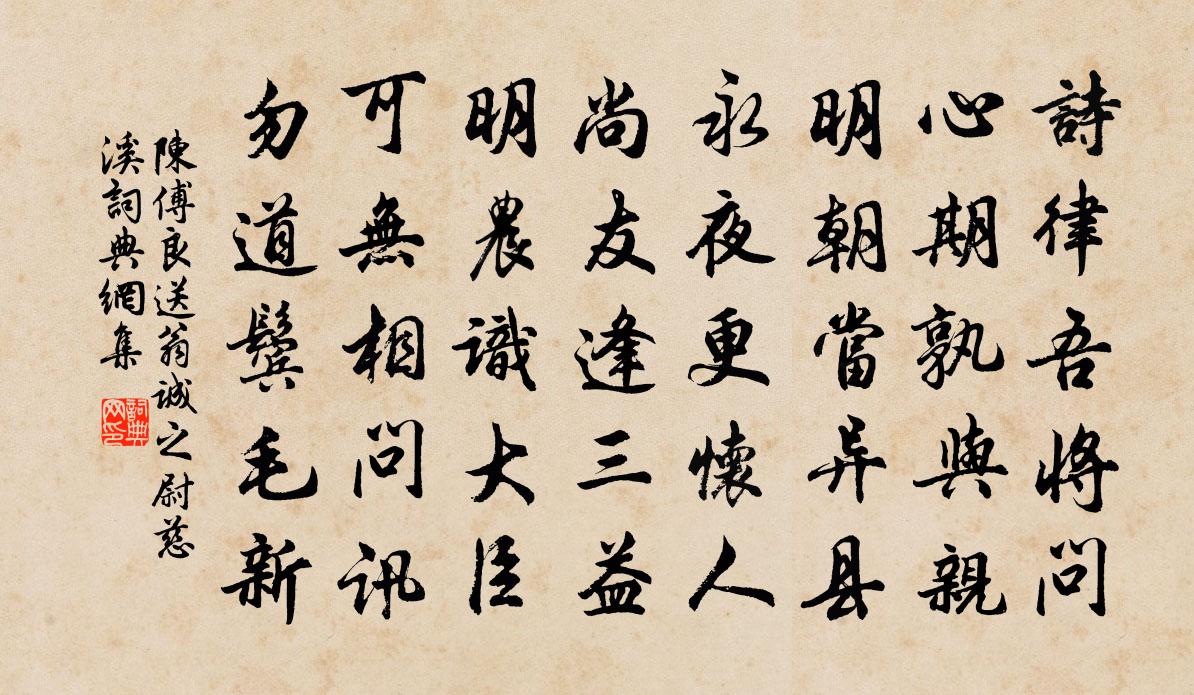 詩律吾將問
心期孰與親
明朝當异县
永夜更懷人
尚友逢三益
明農識大臣
可無相問訊
勿道鬓毛新
陳傅良送翁誠之尉慈
溪詞典網集
詞典
网印